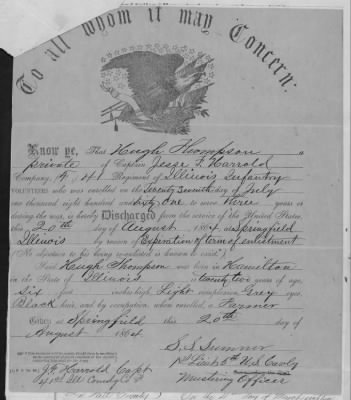 To all whom it may Concern:
Know ye, That Hugh Thompson
private of Captain Jesse F. Harrold
Company, 41 Regiment of Illinois Infantry
VOLUNTEERS who was enrolled on the Twenty Seventh day of July
one thousand eight hundred and sixty One to serve Three years or
during the war, is hereby Discharged from the service of the United States,
this 20th day of August 1864 at Springfield
Illinois by reason of Expiration of term of enlistment
(No objection to his being re-enlisted is known to exist.)
Said Hugh Thompson was born in Hamilton
in the State of Illinois is twenty two years of age,
Six feet inches high, Light complexion, Grey eyes,
Black hair, and by occupation, when enrolled, a Farmer
Given at Springfield this 20th day of
August 1864
S. S. Sumner
1st Lieut 5th U.S. Cavly
Mustering Officer
J. F. Harrold Capt